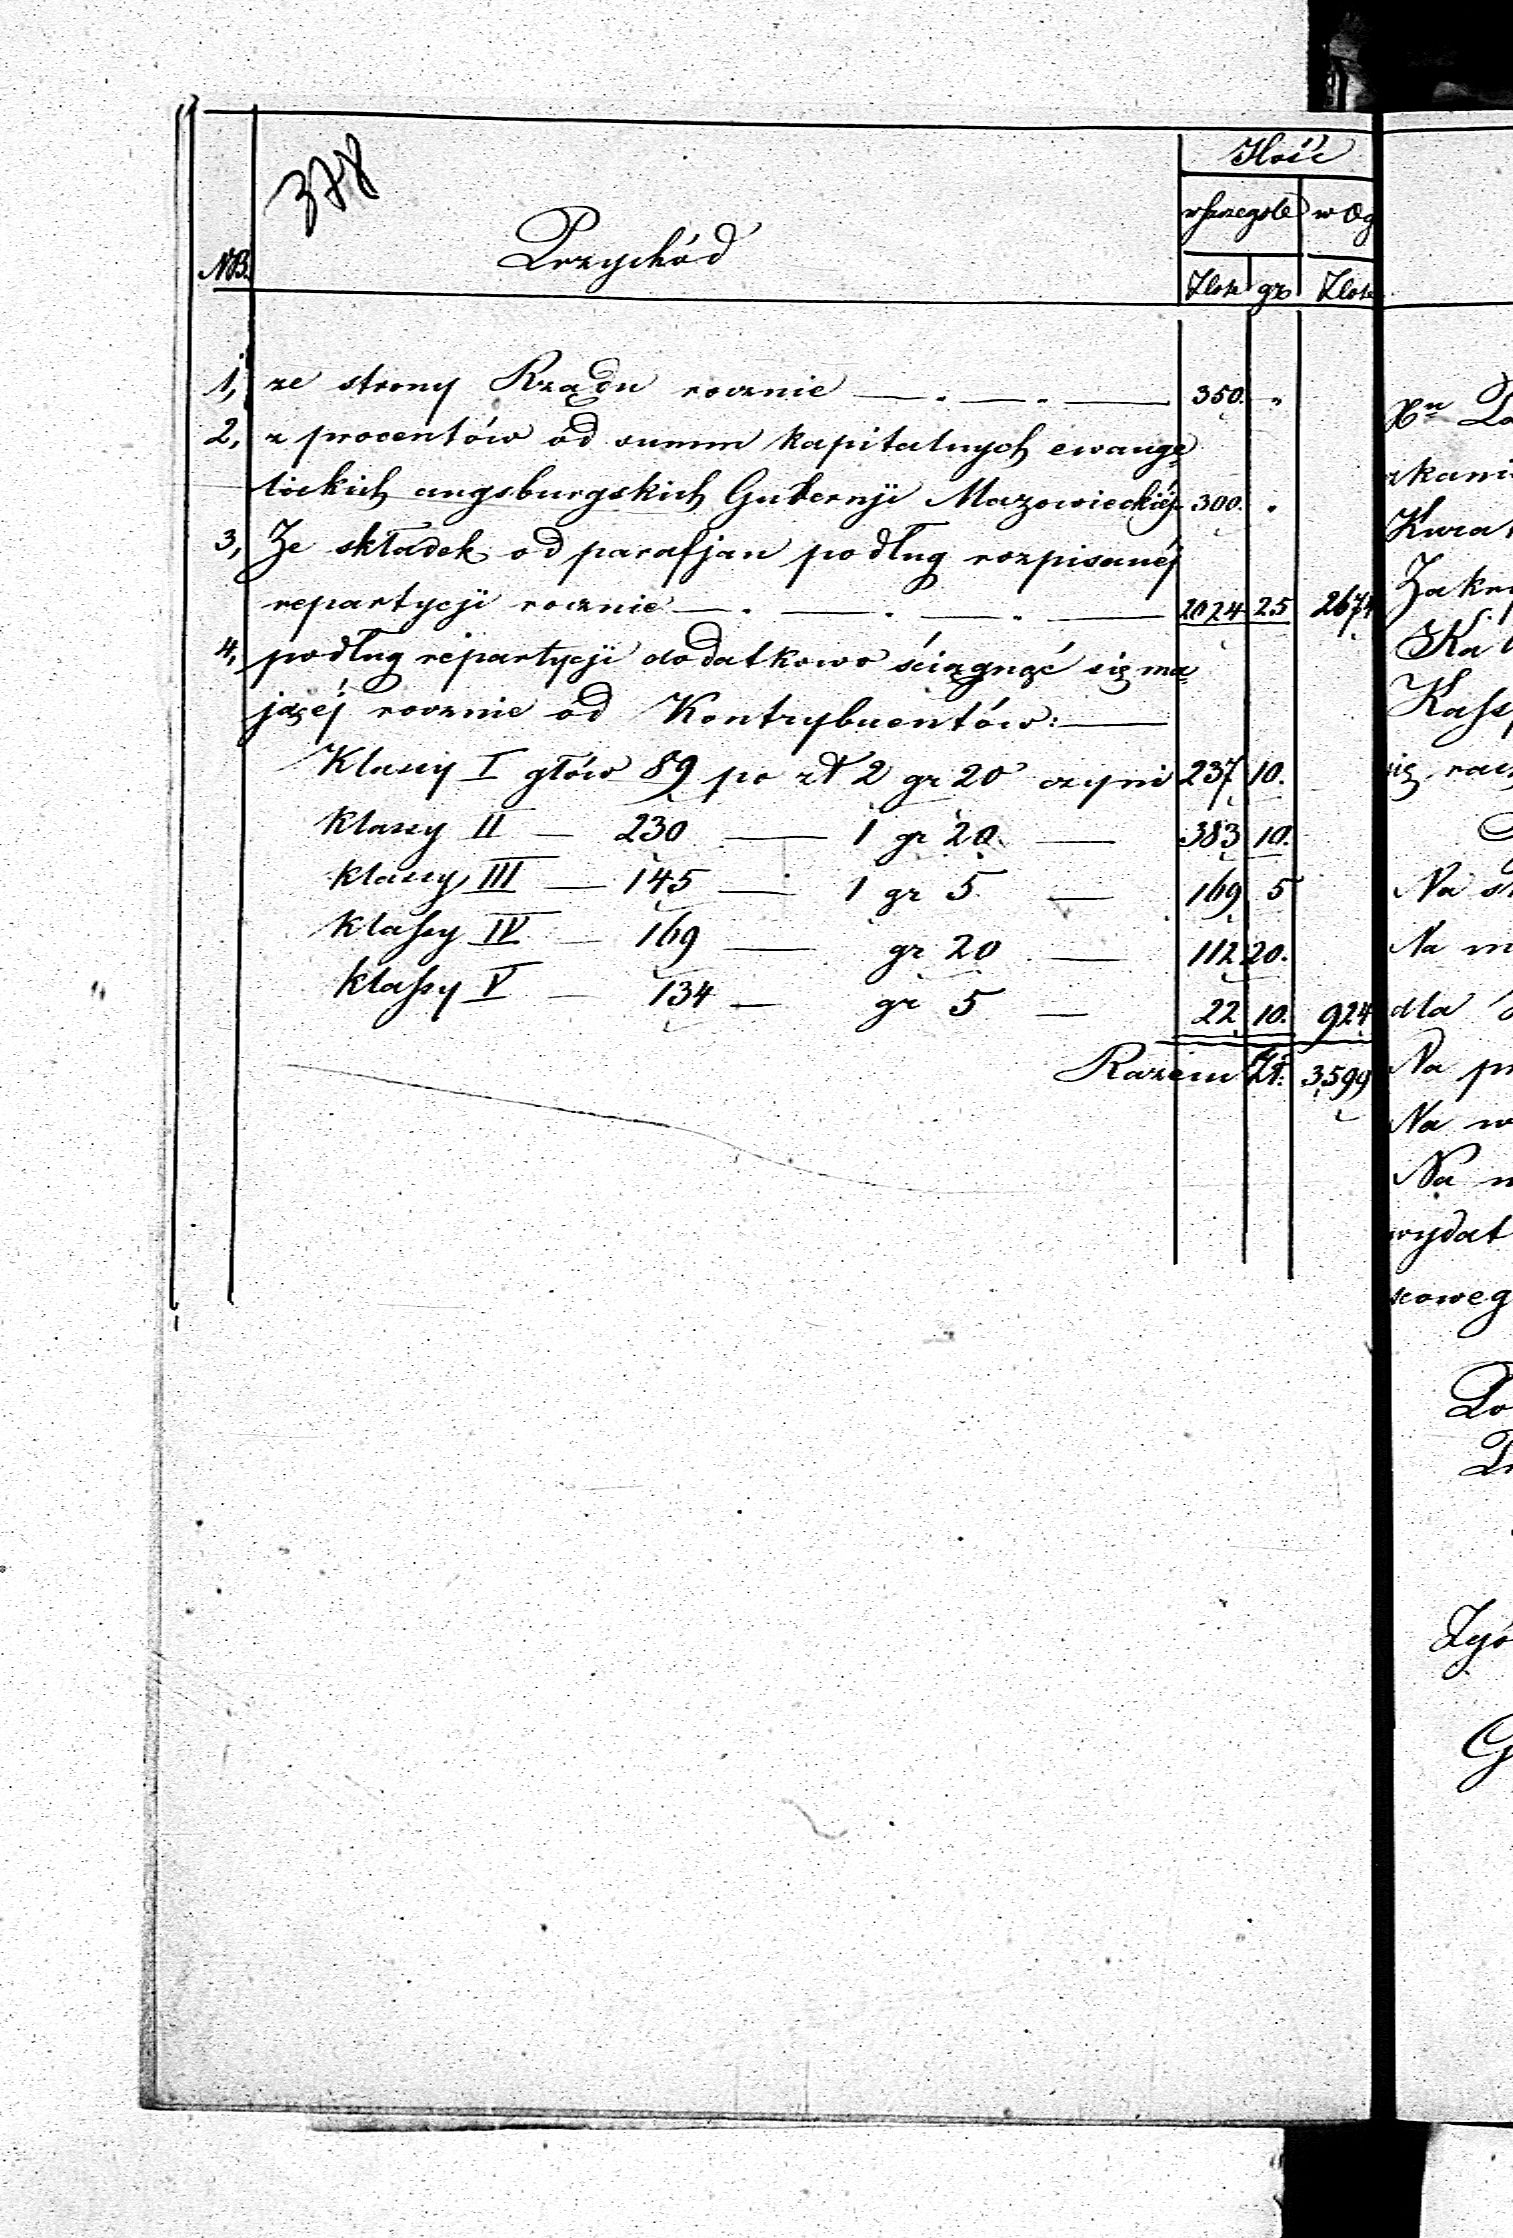 378
Ilość
w szczególe w Og
NB. Przychód
Złote gr Złote
1, ze strony Rządu rocznie — . — . — 350. "
2, z procentów od summ kapitalnych ewange=
lickich augsburgskich Gubernji Mazowieckiéj 300. "
3, Ze składek od parafjan podług rozpisanéj
repartycji rocznie — . — . — . — 2024 25 2674
4, podług repartycji dodatkowo ściągnąć się ma=
jącéj rocznie od Kontrybuentów: —
Klassy I głów 89 po zł 2 gr 20 czyni 237 10.
Klassy II — 230 — 1 gr 20 — 383 10.
Klassy III — 145 — 1 gr 5 — 169 5
Klassy IV — 169 — gr 20 — 112 20.
Klassy V — 134 — gr 5 — 22 10. 924
Razem Zł: 3,599
Na
Na
dla
Na
Na
Na
wydat